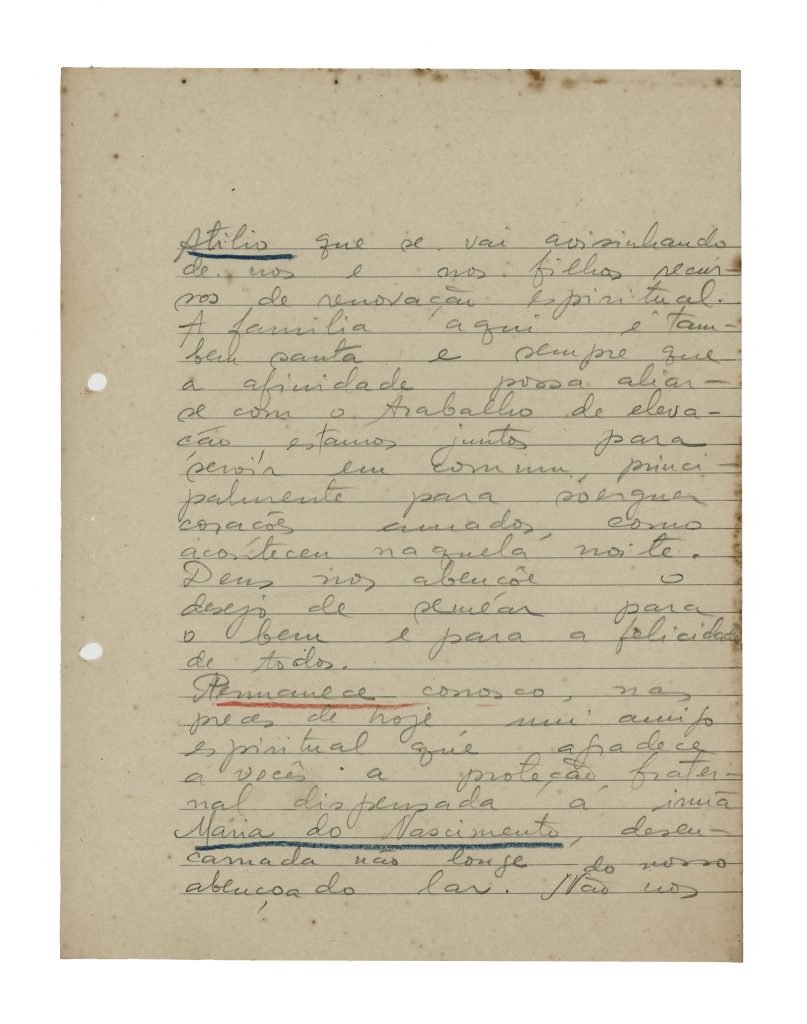 Atilio que se vai avisinhando
de nos e nos filhos recur-
sos de renovação espiritual.
A familia aqui é tam-
bem santa e sempre que
a afinidade possa aliar-
se com o trabalho de eleva-
ção, estamos juntos para
servir em commum, princi-
palmente para soerguer
corações amados, como
aconteceu naquela noite.
Deus nos abençôe o
desejo de semear para
o bem e para a felicidade
de todos.
Permanece conosco, nas
preces de hoje um amigo
espiritual que agradece
a vocês a proteção frater-
nal dispensada á irmã
Maria do Nascimento, desen-
carnada não longe do nosso
abençoado lar. Não nos